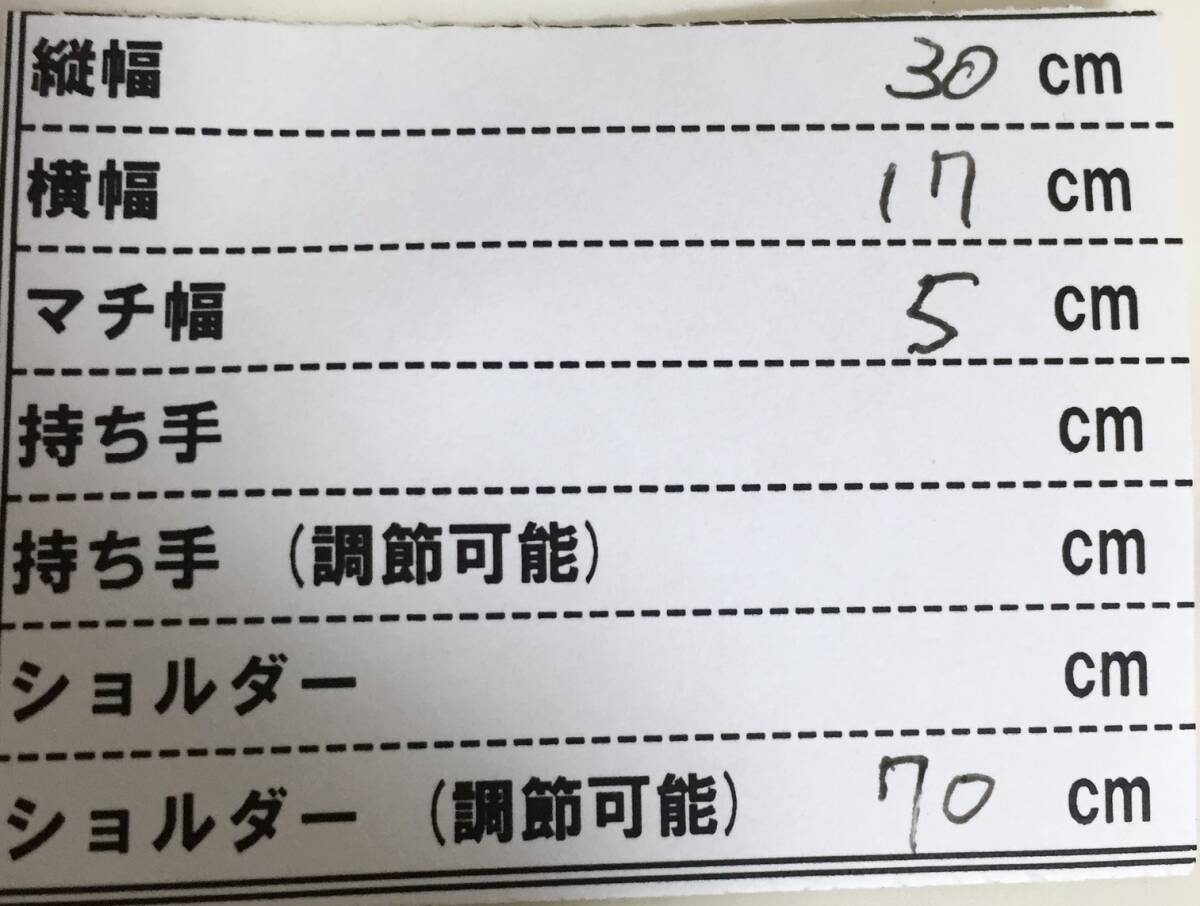 縦幅 30 cm
横幅 17 cm
マチ幅 5 cm
持ち手 cm
持ち手 (調節可能) cm
ショルダー cm
ショルダー (調節可能) 70 cm